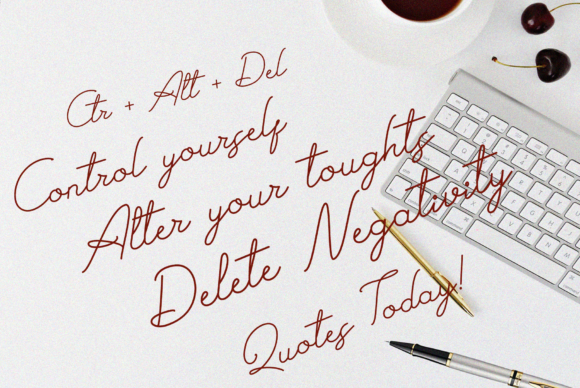 Ctr + Alt + Del
Control yourself
Alter your toughts
Delete Negativity
Quotes Today!